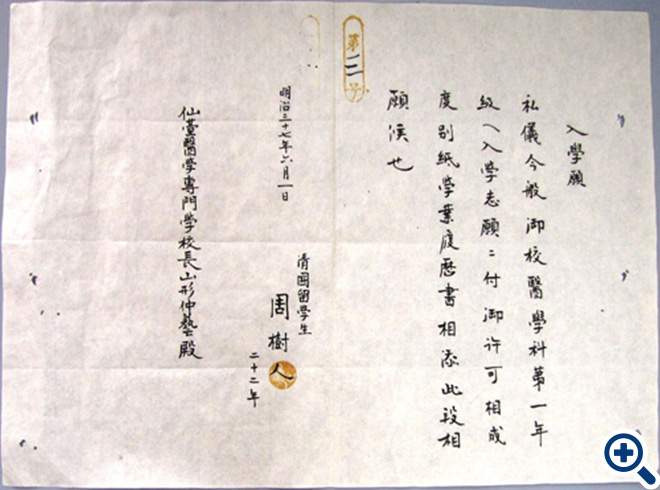 第三号
入學願
私儀今般御校醫學科第一年
級ヘ入學志願ニ付御許可相成
度別紙學業履歴書相添此段相
願候也
明治三十七年六月一日
清国留学生
周樹人
二十二年
仙臺醫学専門学校長山形仲藝殿